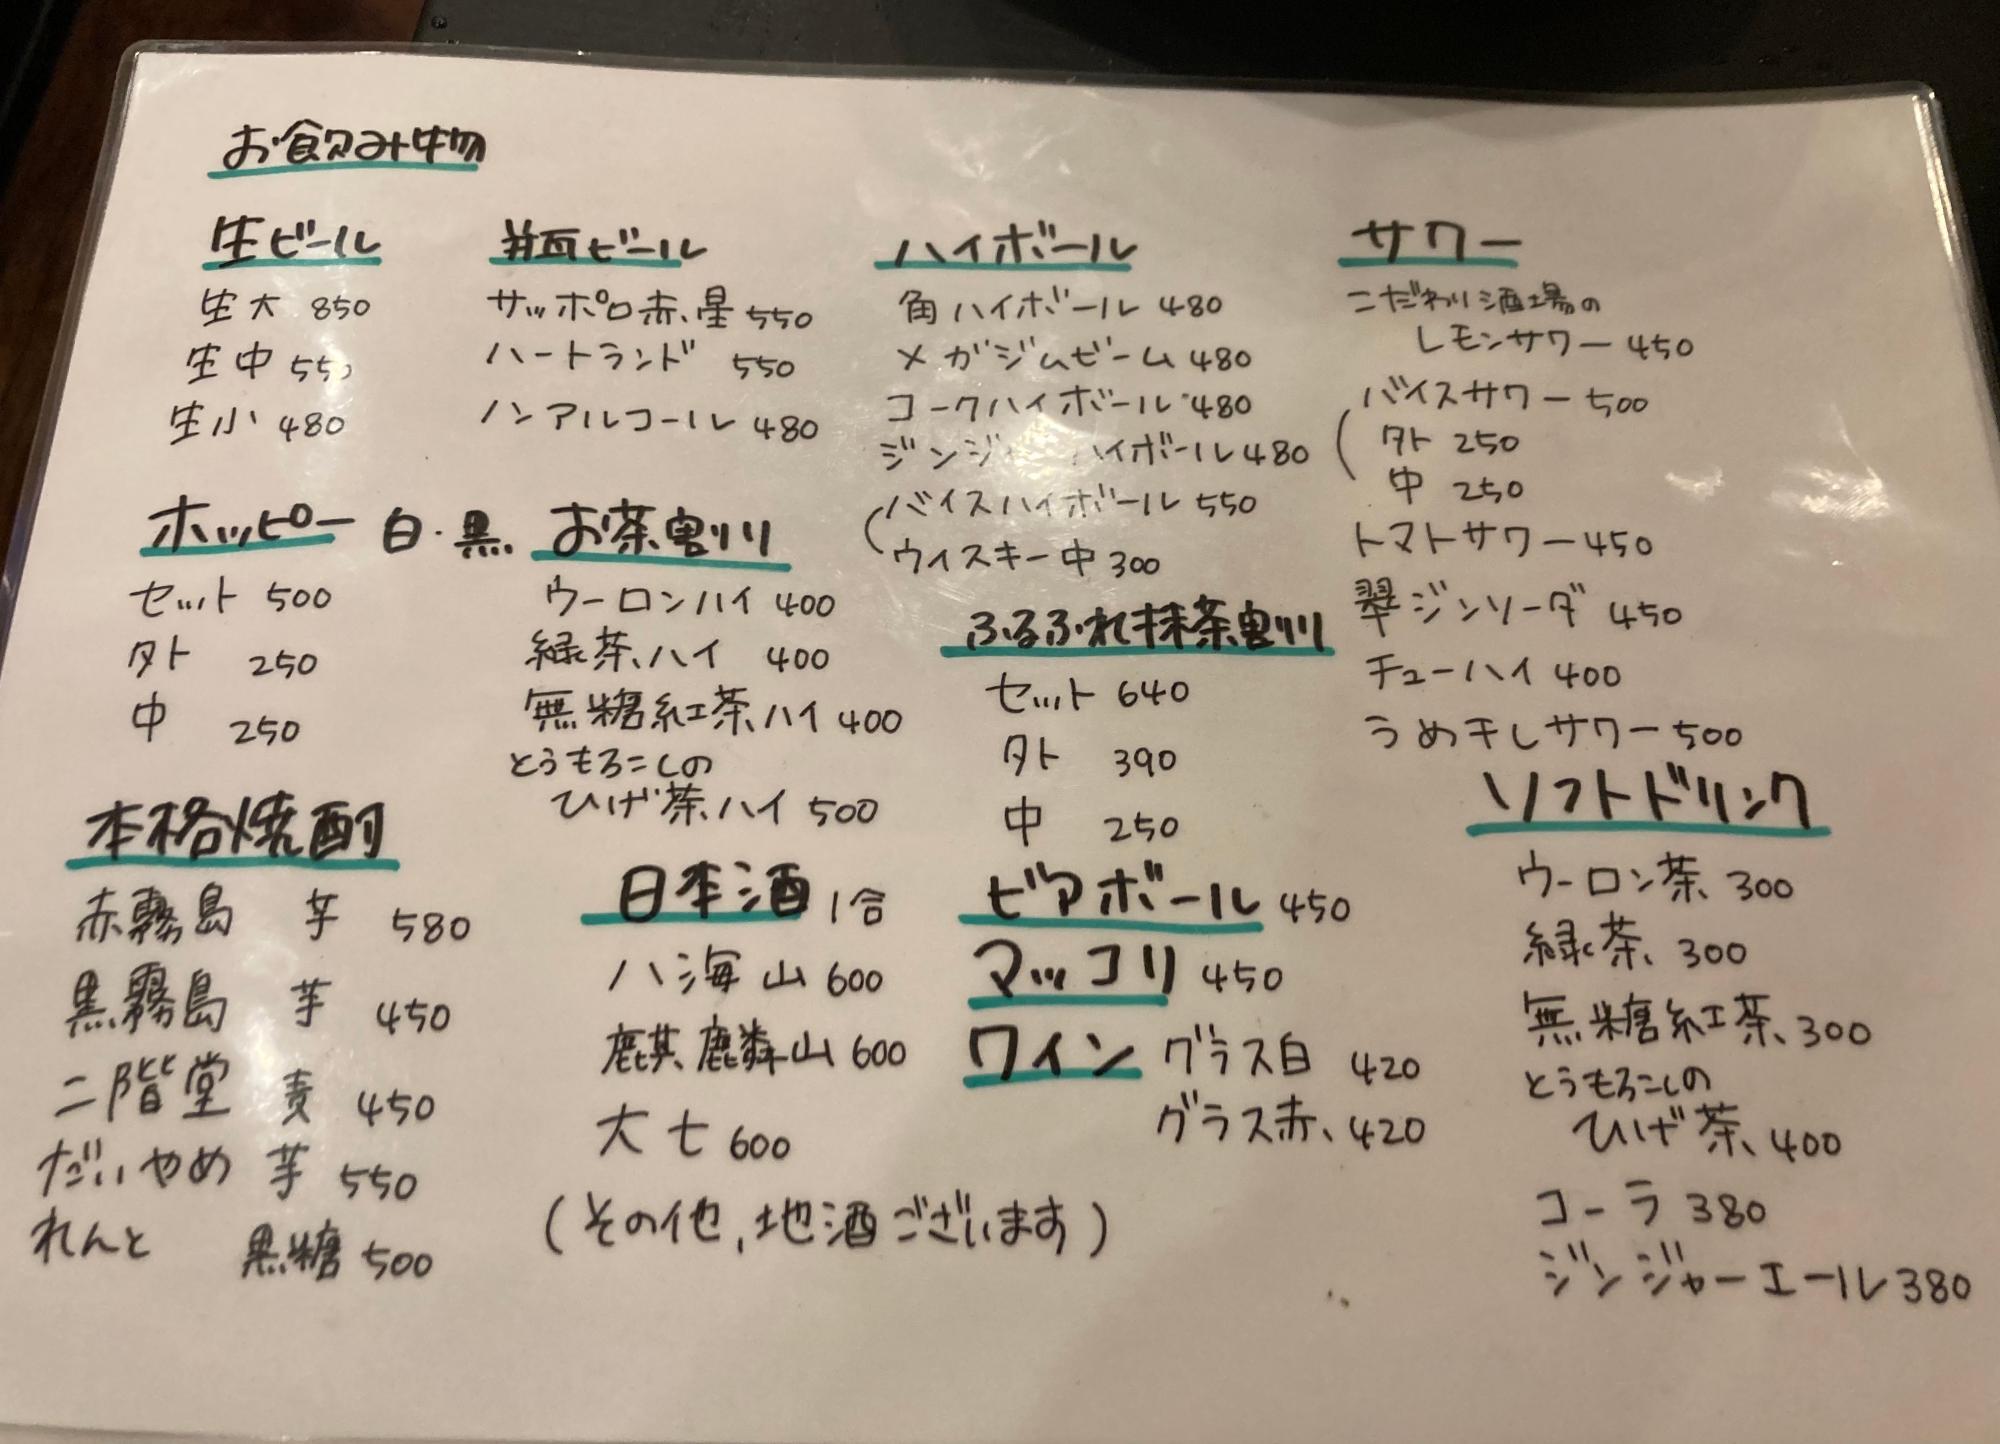 お飲み物
生ビール
生大 850
生中 550
生小 480
瓶ビール
サッポロ赤星 550
ハートランド 550
ノンアルコール 480
ハイボール
角ハイボール 480
メガジムビーム 480
コークハイボール 480
ジンジャーハイボール 480
バイスハイボール 550
ウイスキー中 300
サワー
こだわり酒場の
レモンサワー 450
バイスサワー 500
外 250
中 250
トマトサワー 450
翠ジンソーダ 450
チューハイ 400
うめ干しサワー 500
ホッピー 白・黒
セット 500
外 250
中 250
お茶割り
ウーロンハイ 400
緑茶ハイ 400
無糖紅茶ハイ 400
とうもろこしの
ひげ茶ハイ 500
ふるふれ抹茶割り
セット 640
外 390
中 250
本格焼酎
赤霧島 芋 580
黒霧島 芋 450
二階堂 麦 450
だいやめ 芋 550
れんと 黒糖 500
日本酒 1合
八海山 600
麒麟山 600
大七 600
(その他、地酒ございます)
ビアボール 450
マッコリ 450
ワイン グラス白 420
グラス赤 420
ソフトドリンク
ウーロン茶 300
緑茶 300
無糖紅茶 300
とうもろこしの
ひげ茶 400
コーラ 380
ジンジャーエール 380